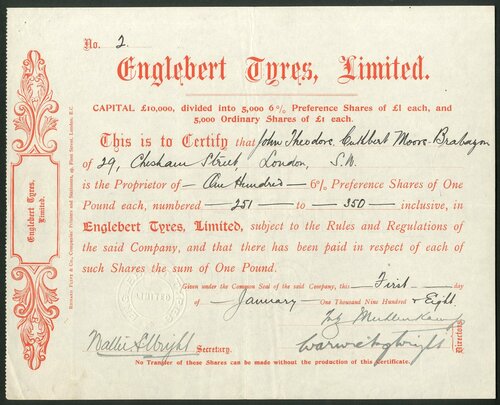 No. 2.
Englebert Tyres, Limited.
CAPITAL £10,000, divided into 5,000 6% Preference Shares of £1 each, and
5,000 Ordinary Shares of £1 each.
This is to Certify that John Theodore Cuthbert Moore-Brabazon
of 29, Chesham Street, London, S.W.
is the Proprietor of — One Hundred — 6% Preference Shares of One
Pound each, numbered — 251 — to — 350 — inclusive, in
Englebert Tyres, Limited, subject to the Rules and Regulations of
the said Company, and that there has been paid in respect of each of
such Shares the sum of One Pound.
Given under the Common Seal of the said Company, this — First — day
of — January — One Thousand Nine Hundred & Eight.
Secretary.
Warwick Wright
Directors.
No Transfer of these Shares can be made without the production of this certificate.
Englebert Tyres,
Limited.
LIMITED